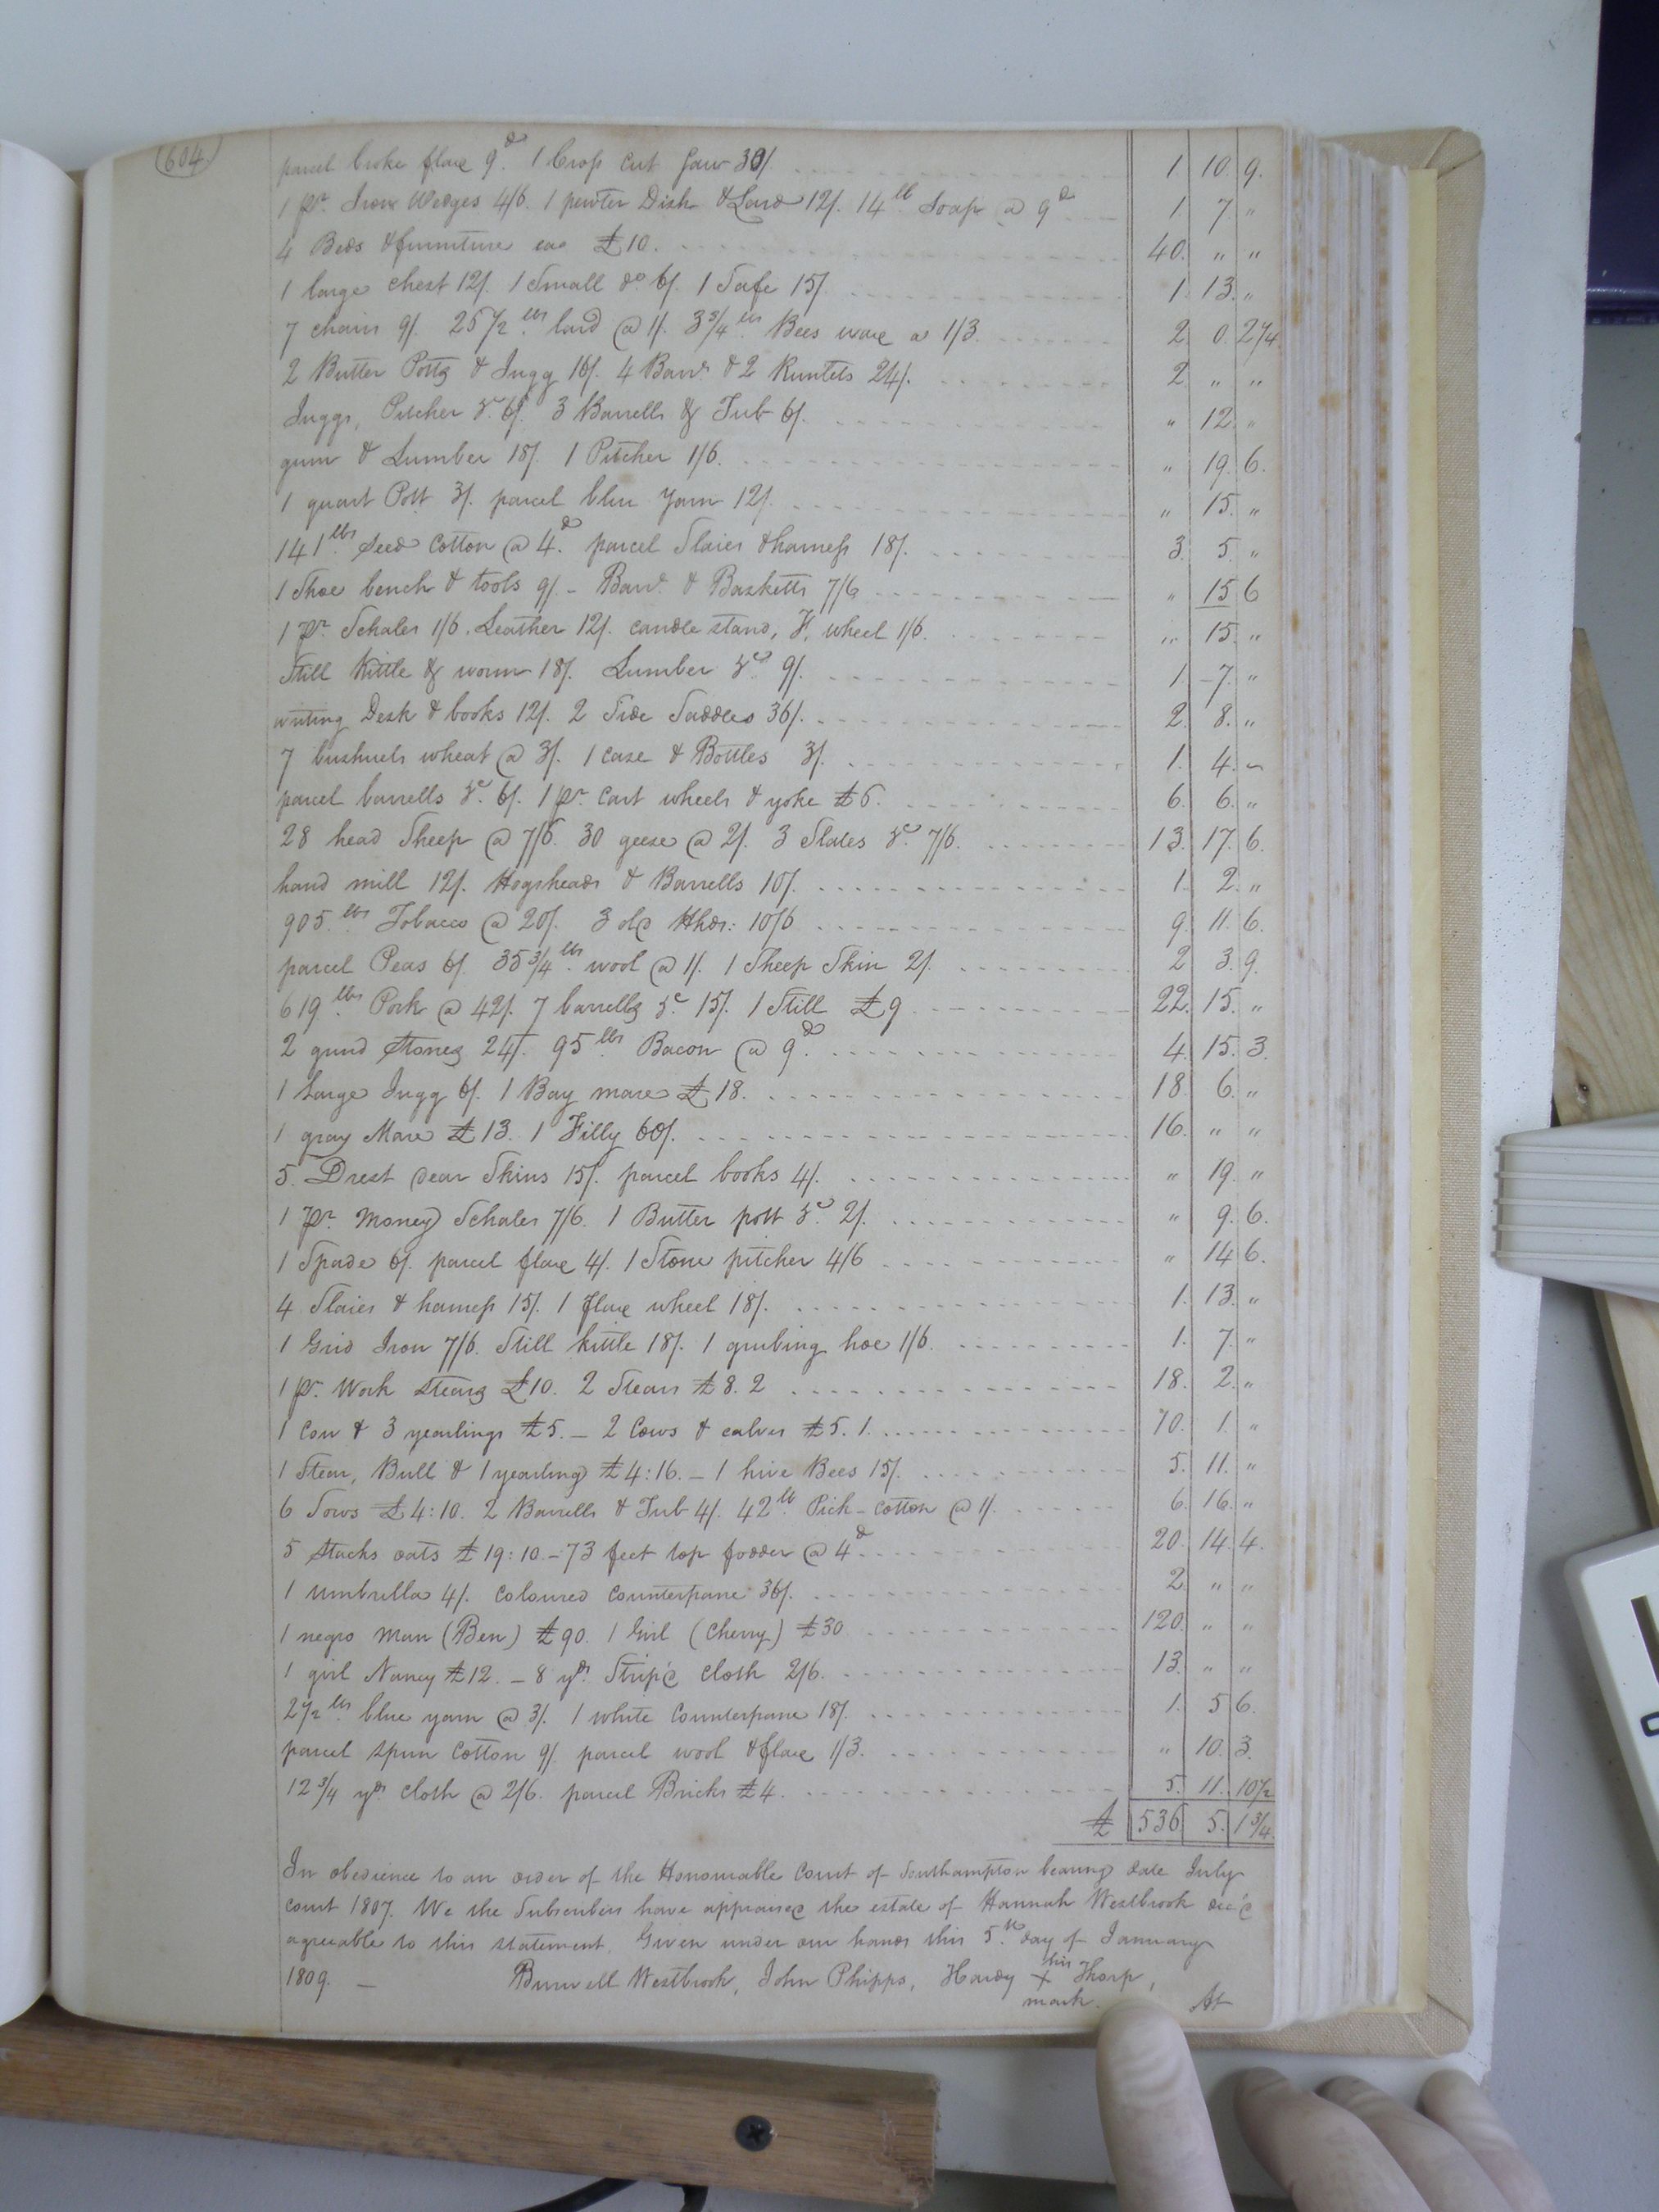 (604)
parcel broke flax 9d. 1 Cross Cut Saw 30/. 1 10 9.
1 pr. Iron Wedges 4/6. 1 pewter Dish & Lard 12/. 14 lb. Soap @ 9d 1 7 "
4 Beds & furniture ea £10. 40. " "
1 large chest 12/. 1 Small do 6/. 1 Safe 15/. 1. 13. "
7 chairs 9/. 25 1/2 lbs lard @ 1/. 3 3/4 lbs Bees wax @ 1/3. 2 0. 2 1/4
2 Butter Potts & Jugg 16/. 4 Barrs. & 2 Runlets 24/. 2 " "
Juggs, Pitcher &c. 6/. 3 Barrells & Tub 6/. " 12. "
gum & Lumber 18/. 1 Pitcher 1/6. " 19. 6.
1 quart Pott 3/. parcel blue Yarn 12/. " 15. "
141 lbs. Seed Cotton @ 4d. parcel Slaies & harness 18/. 3. 5. "
1 Shoe bench & tools 9/. - Barrs. & Basketts 7/6 " 15 6
1 pr. Schales 1/6. Leather 12/. candle stand, F. wheel 1/6. " 15. "
Still Kittle & worm 18/. Lumber &c. 9/. 1. 7. "
writing Desk & books 12/. 2 Side Saddles 36/. 2. 8. "
7 bushuels wheat @ 3/. 1 case & Bottles 3/. 1. 4. "
parcel barrells &c. 6/. 1 pr. Cart wheels & yoke £6. 6. 6. "
28 head Sheep @ 7/6. 30 geese @ 2/. 3 Slates &c. 7/6. 13. 17. 6.
hand mill 12/. Hogsheads & Barrells 10/. 1. 2. "
905 lbs. Tobacco @ 20/. 3 old Hhds: 10/6 9. 11. 6.
parcel Peas 6/. 35 3/4 lbs. wool @ 1/. 1 Sheep Skin 2/. 2 3. 9.
619 lbs. Pork @ 42/. 7 barrells &c 15/. 1 Still £9 22. 15. "
2 grind Stones 24/. 95 lbs. Bacon @ 9d. 4. 15. 3.
1 Large Jugg 6/. 1 Bay mare £18. 18 6. "
1 gray Mare £13. 1 Filly 60/. 16. " "
5. Drest dear Skins 15/. parcel books 4/. " 19. "
1 pr. Money Schales 7/6. 1 Butter pott &c. 2/. " 9. 6.
1 Spade 6/. parcel flax 4/. 1 Stone pitcher 4/6 " 14 6.
4 Slaies & harness 15/. 1 flax wheel 18/. 1. 13. "
1 Grid Iron 7/6. Still kittle 18/. 1 grubing hoe 1/6. 1. 7. "
1 pr. Work stears £10. 2 Stears £8. 2 18. 2. "
1 Cow & 3 yearlings £5. - 2 Cows & calves £5. 1. 70. 1. "
1 Stear, Bull & 1 yearling £4:16. - 1 hive Bees 15/. 5. 11. "
6 Sows £4:10. 2 Barrells & Tub 4/. 42 lb. Pick-cotton @ 1/. 6. 16. "
5 Stacks oats £19:10. - 73 feet top fodder @ 4d. 20. 14. 4.
1 umbrella 4/. Coloured Counterpane 36/. 2 " "
1 negro man (Ben) £90. 1 Girl (Cherry) £30 120. " "
1 girl Nancy £12. - 8 yds. Strip'd cloth 2/6. 13. " "
2 1/2 lbs. blue yarn @ 3/. 1 white Counterpane 18/. 1. 5 6.
parcel spun Cotton 9/. parcel wool & flax 1/3. " 10. 3.
12 3/4 yds. cloth @ 2/6. parcel Bricks £4. 5. 11. 10 1/2
£ 536 5. 1 3/4
In obedience to an order of the Honourable Court of Southampton bearing date July
Court 1807. We the Subscribers have appraised the estate of Hannah Westbrook dec'd
agreeable to this statement. Given under our hands this 5th. day of January
1809. - Burwell Westbrook, John Phipps, Hardy his X mark Tharp,
At